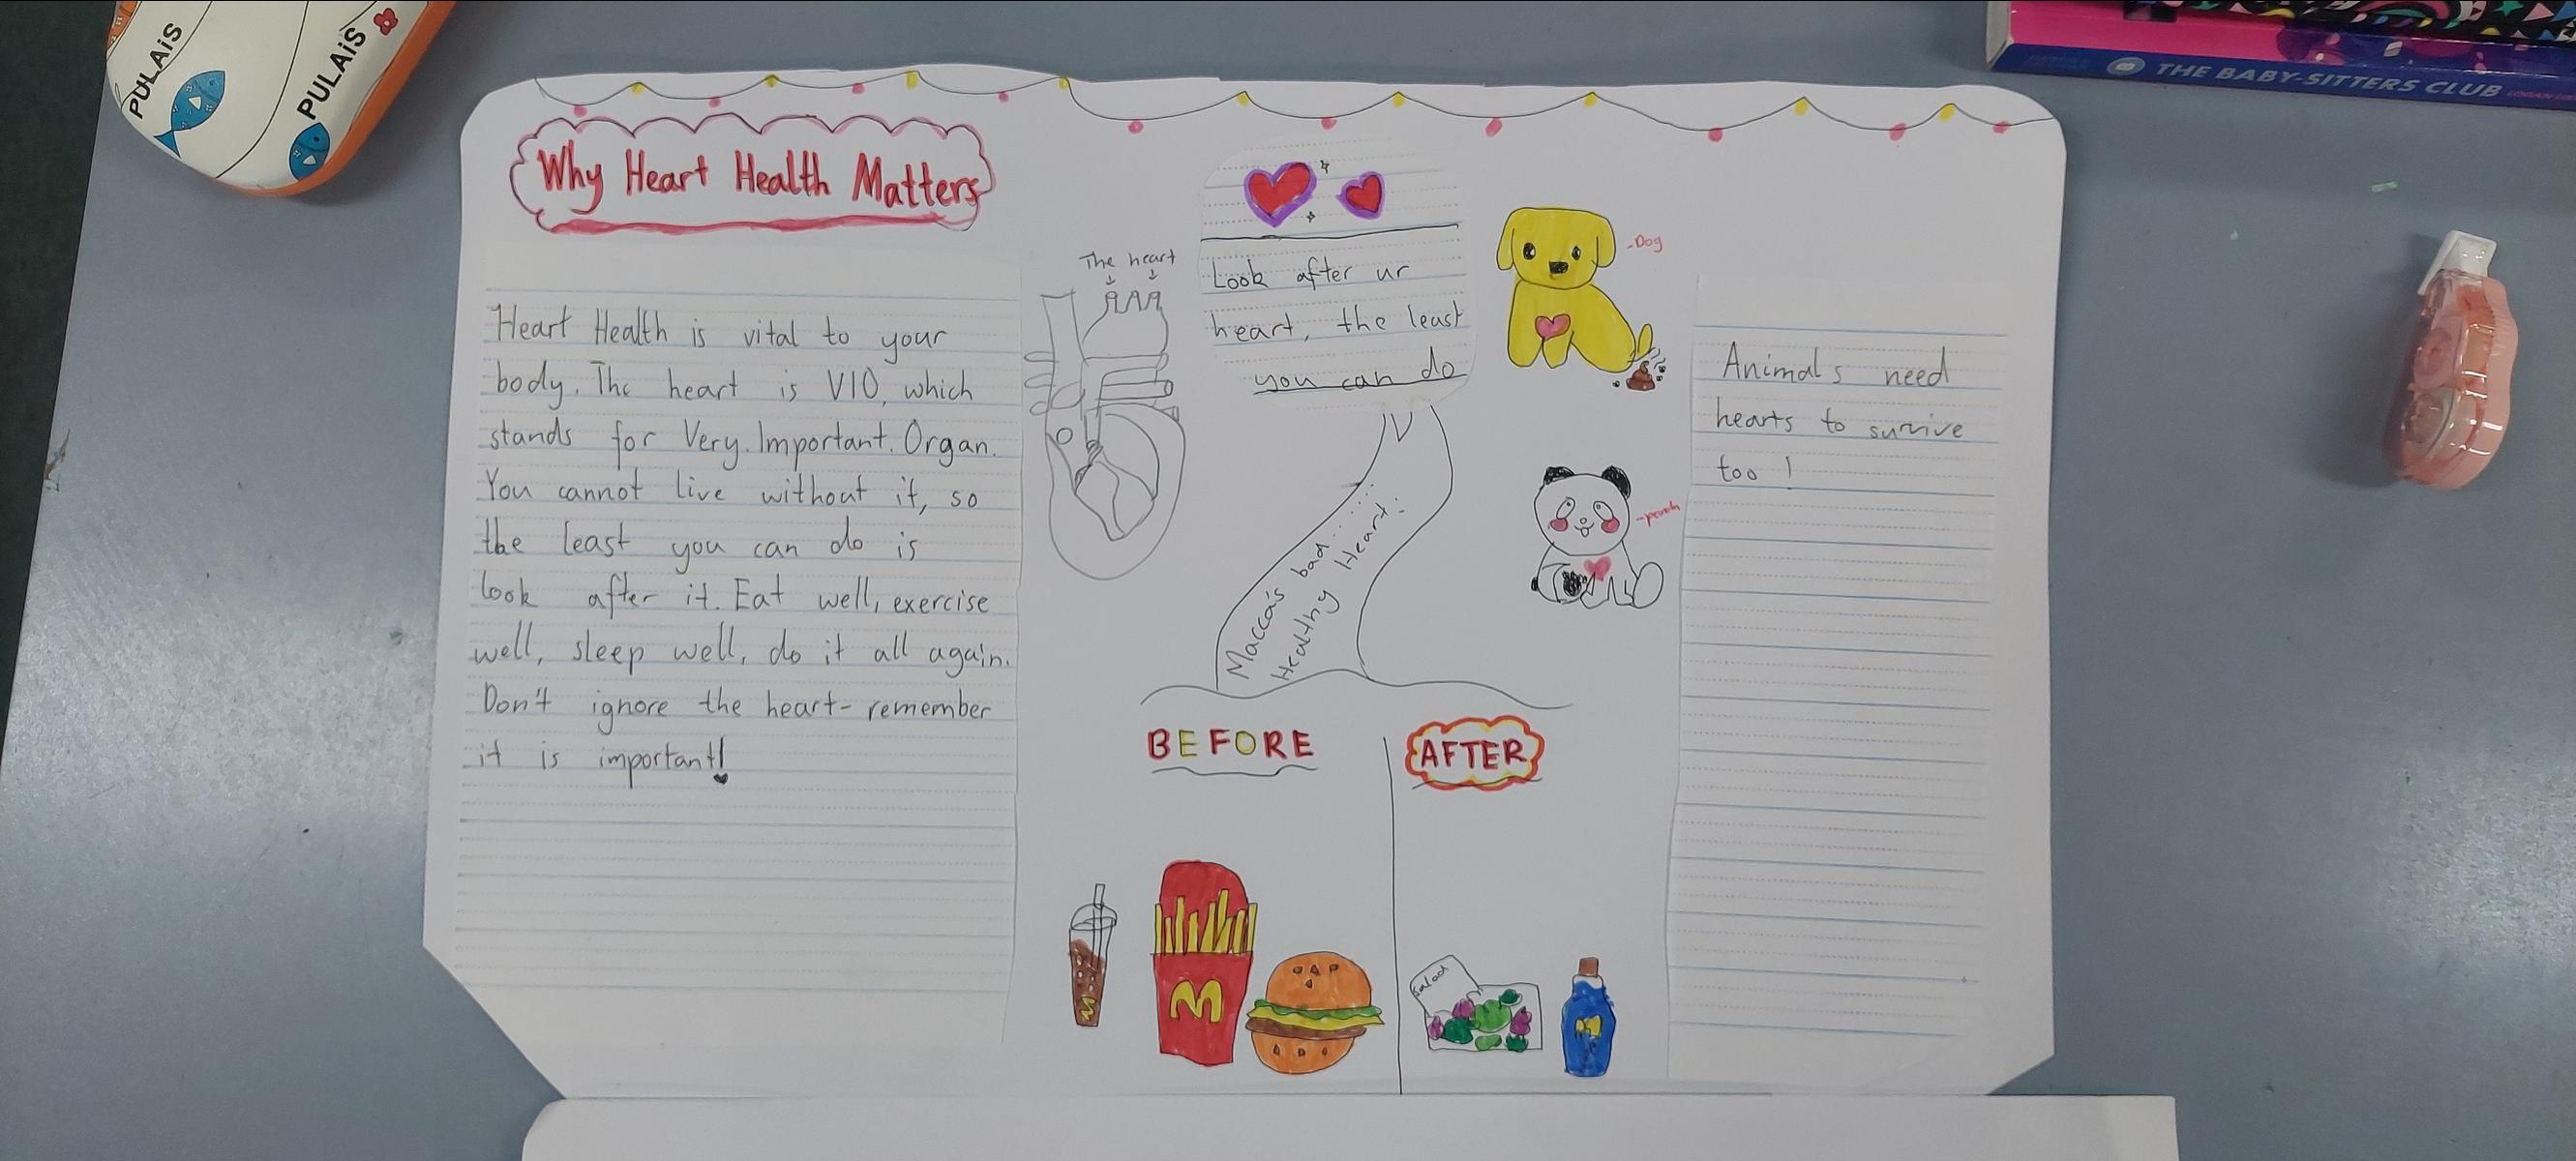 PULAiS
PULAiS
THE BABY-SITTERS CLUB
Why Heart Health Matters
Heart Health is vital to your
body. The heart is VIO, which
stands for Very. Important. Organ.
You cannot live without it, so
the least you can do is
look after it. Eat well, exercise
well, sleep well, do it all again.
Don't ignore the heart- remember
it is important!
The heart
Look after ur
heart, the least
you can do
Macca's bad......
Healthy Heart.
-Dog
Animals need
hearts to survive
too !
BEFORE
AFTER
M
M
Salad